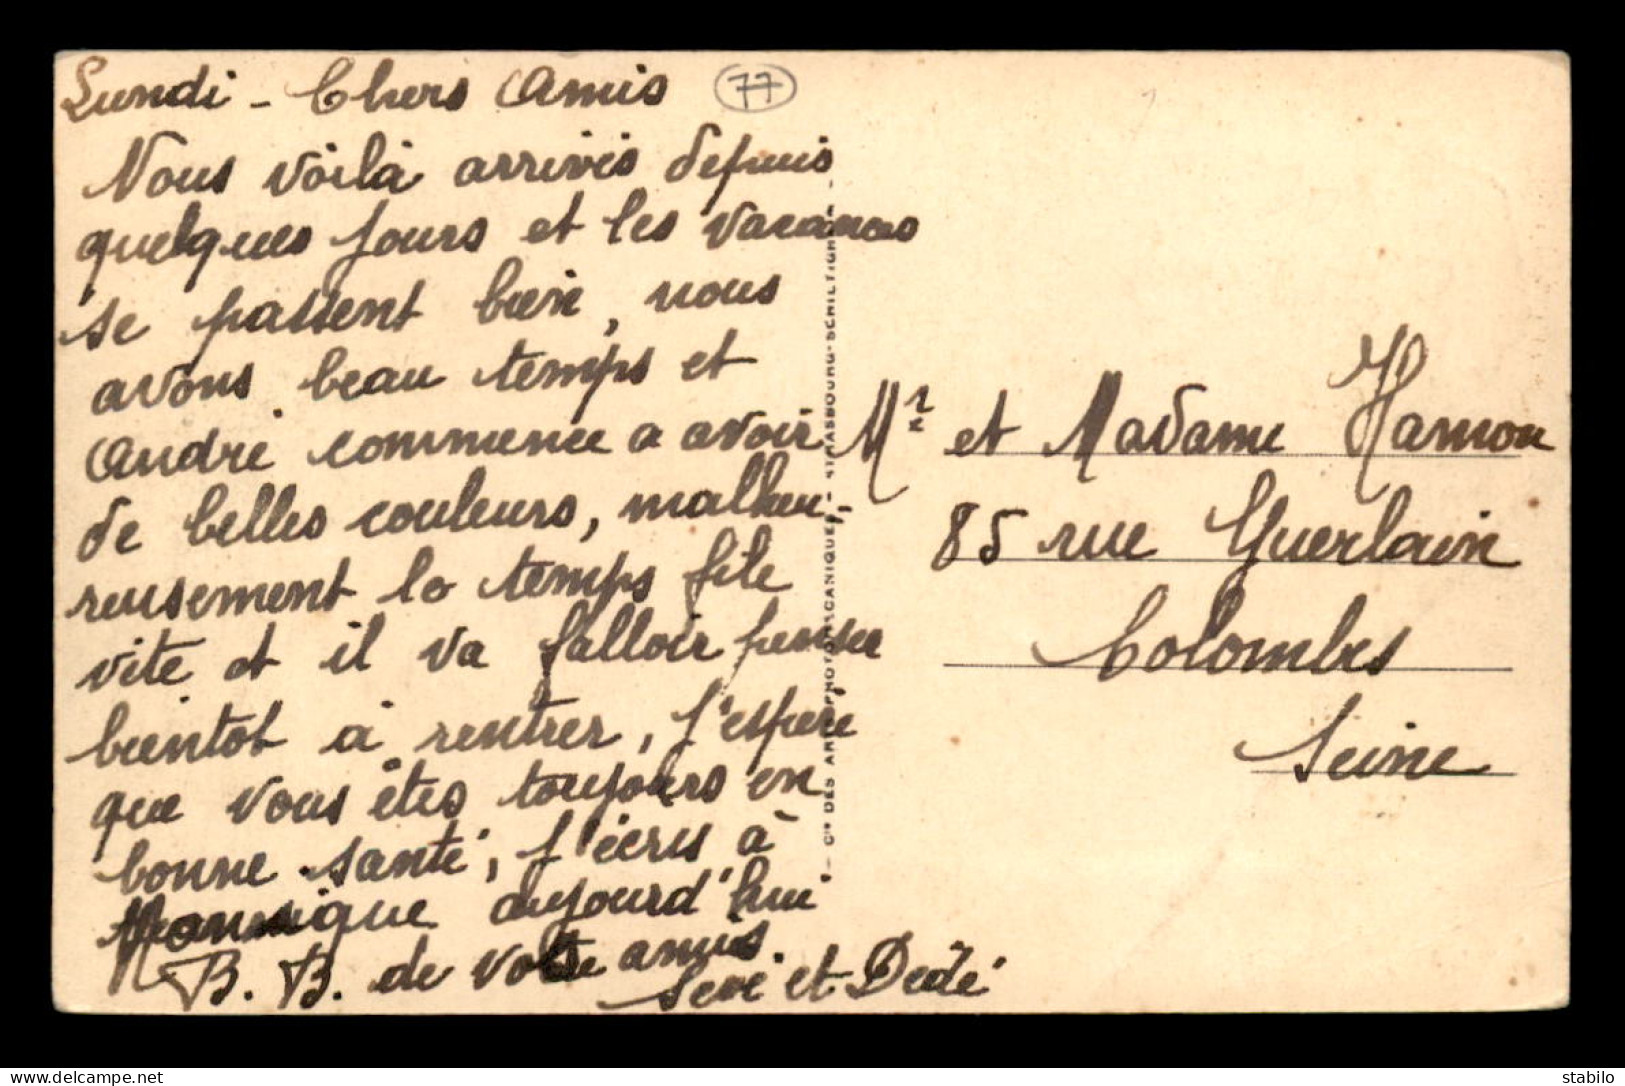 Lundi - Chers Amis
77
Nous voilà arrivés depuis
quelques jours et les vacances
se passent bien, nous
avons beau temps et
André commence a avoir
de belles couleurs, malheu-
reusement le temps file
vite et il va falloir penser
bientot à rentrer, j'espère
que vous êtes toujours en
bonne santé, j'écris à
Monique aujourd'hui
B. B. de votre amis.
et Dédé
Cie DES ARTS PHOTOMÉCANIQUES - STRASBOURG-SCHILTIGH
Mr et Madame Hamon
85 rue Guerlain
Colombes
Seine
https://www.delcampe.net
stabilo